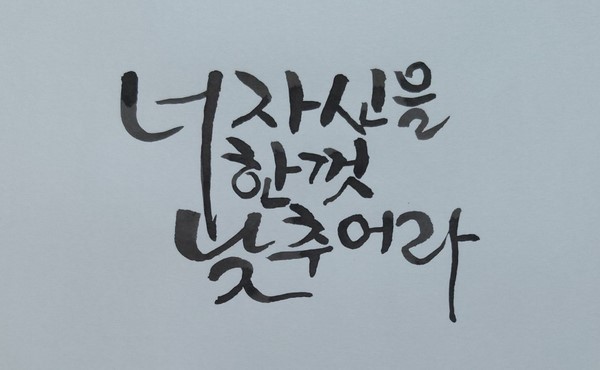 너 자신을
한껏
낮추어라